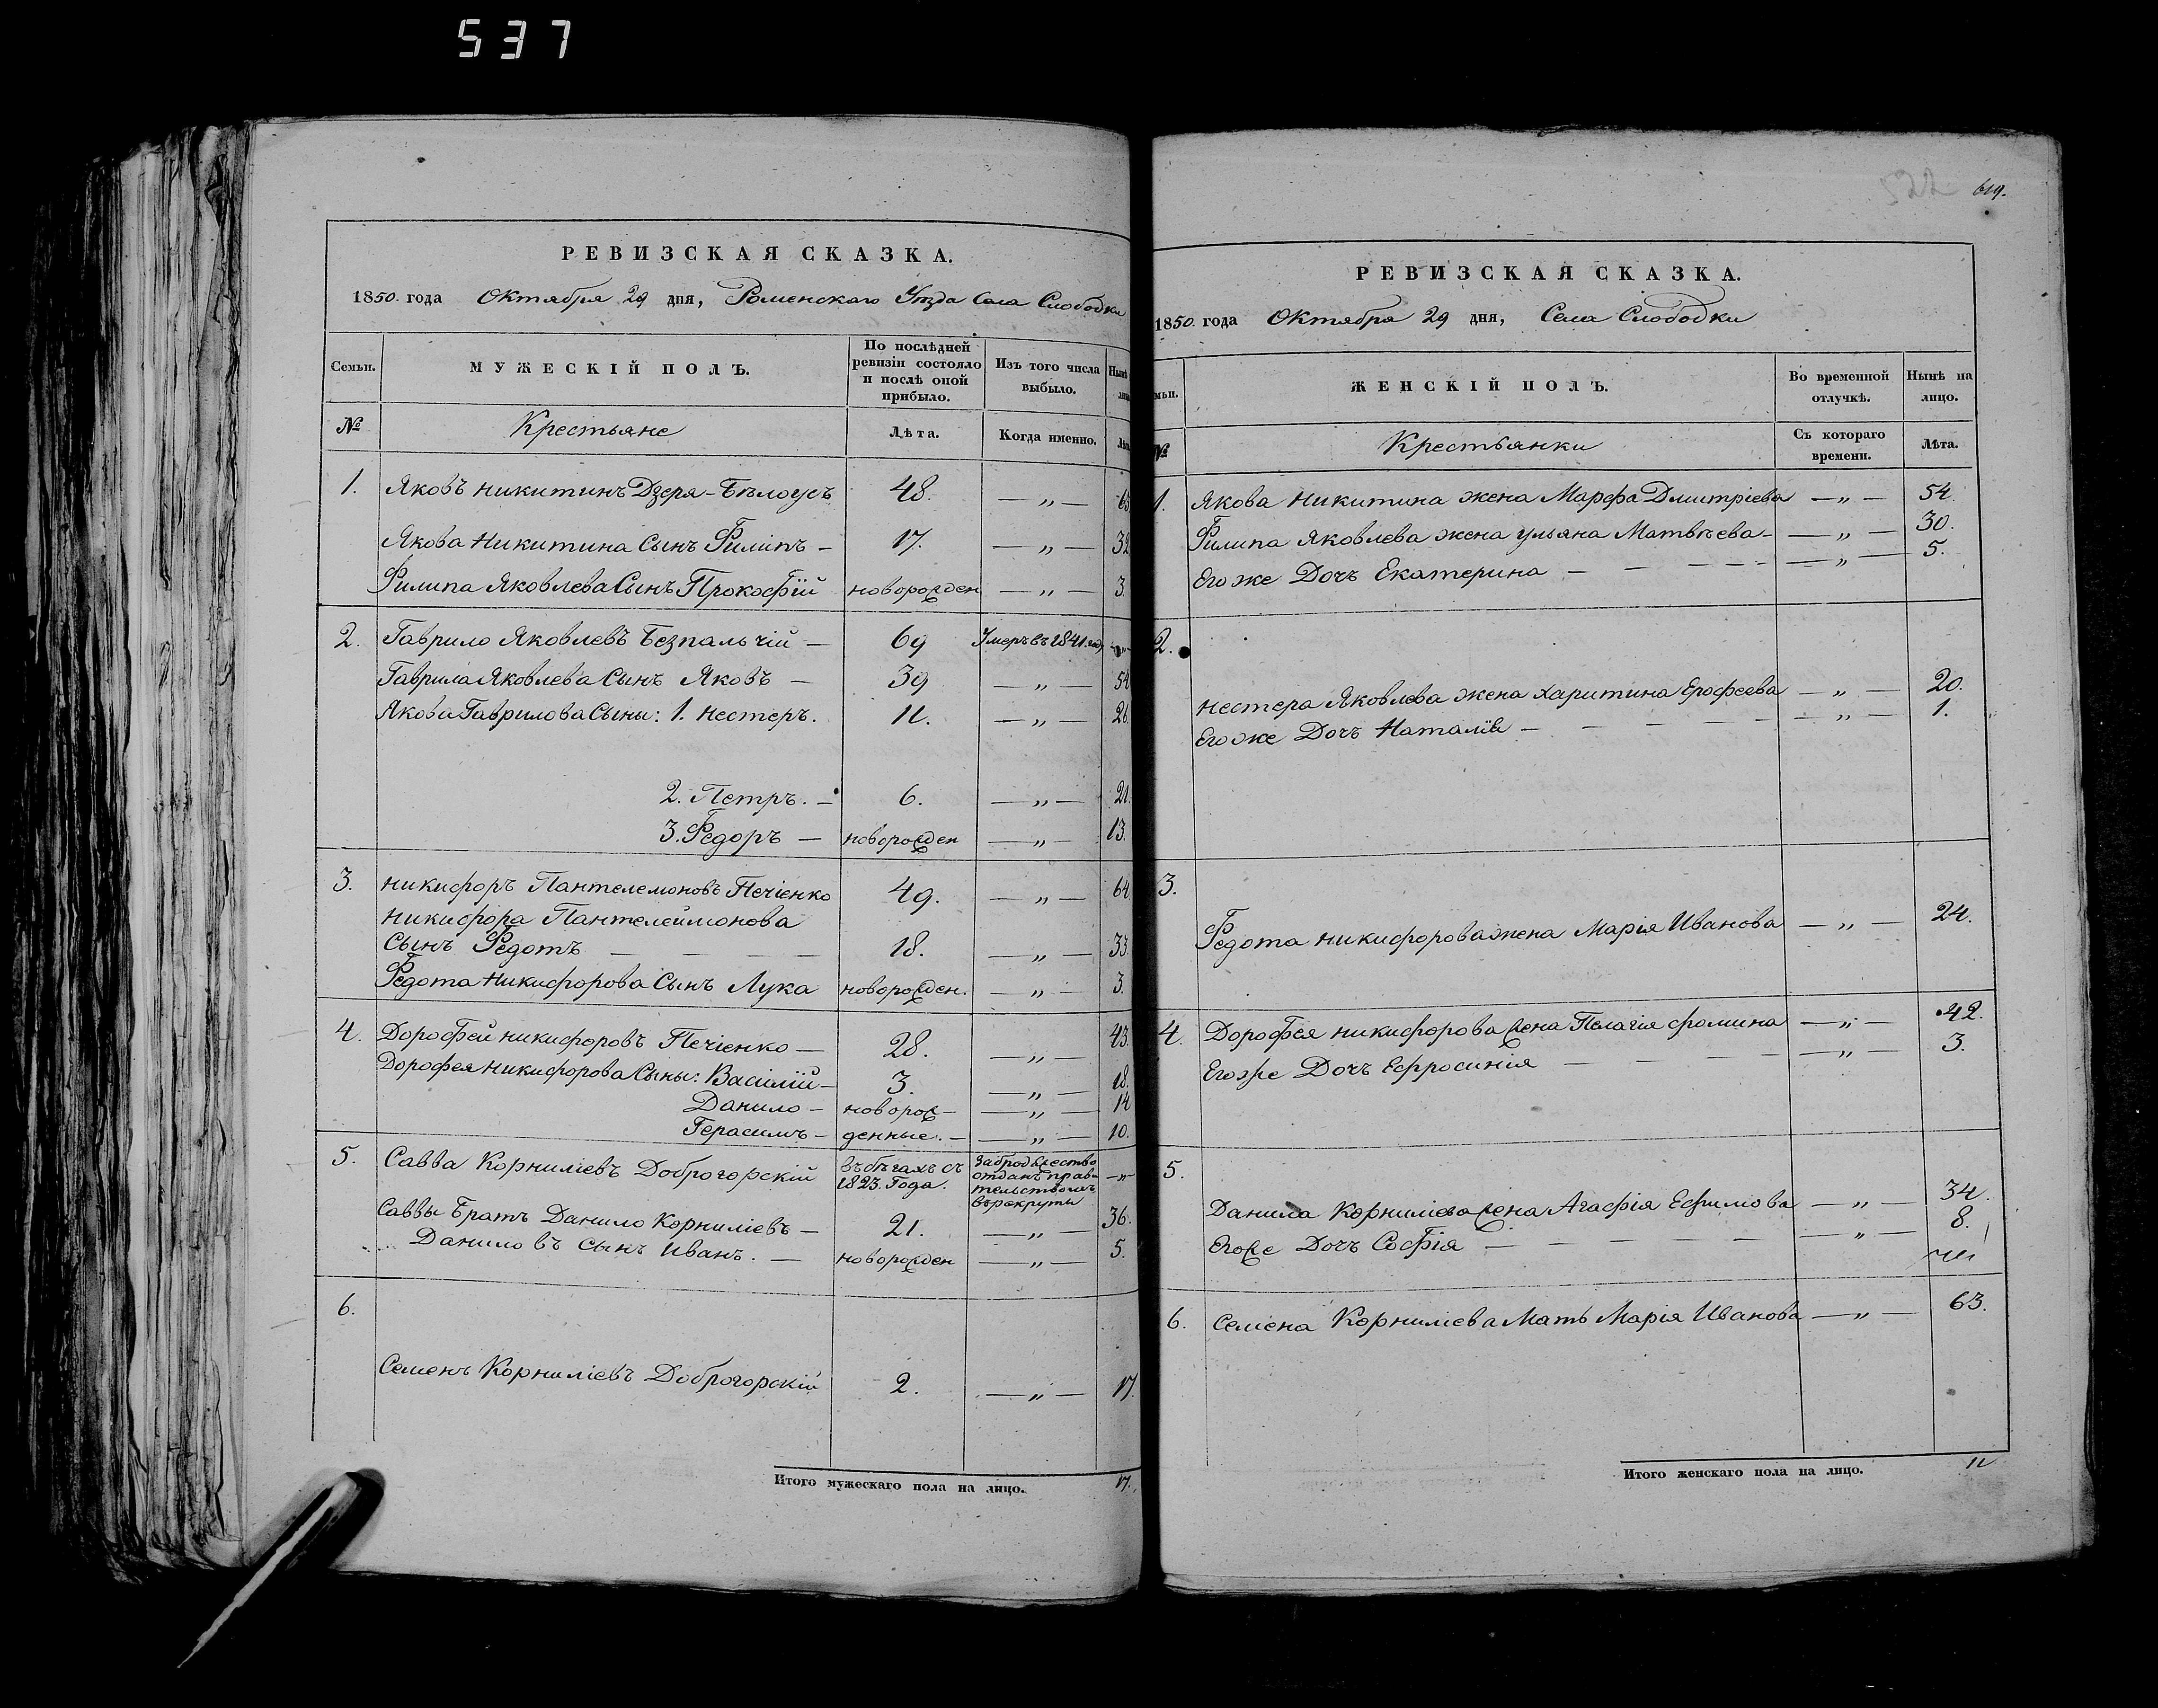 537
РЕВИЗСКАЯ СКАЗКА.
1850. года Октября 29 дня, Роменскаго Уѣзда Села Слободки
Семьи.
МУЖЕСКІЙ ПОЛЪ.
По послѣдней ревизіи состояло и послѣ оной прибыло.
Изъ того числа выбыло.
№
Крестьяне
Лѣта.
Когда именно.
1. Яковъ Никитинъ Дзеря-Бѣлоусъ 48. — „ —
Якова Никитина Сынъ Филипъ — 17. — „ — 32
Филипа Яковлева Сынъ Прокофій новорожден — „ — 3.
2. Гаврило Яковлевъ Безпальчій — 69 Умеръ въ 1841. год
Гаврила Яковлева Сынъ Яковъ — 39 — „ — 54
Якова Гаврилова Сыны: 1. Нестеръ. 11. — „ — 26
2. Петръ. — 6. — „ — 21.
3. Федоръ — новорожден — „ — 13.
3. Никифоръ Пантелемоновъ Печіенко 49. — „ — 64
Никифора Пантелеймонова
Сынъ Федотъ — — — — 18. — „ — 33.
Федота Никифорова Сынъ Лука новорожден. — „ — 3.
4. Дорофей Никифоровъ Печіенко — 28. — „ — 43.
Дорофея Никифорова Сыны: Василій — 3. — „ — 18.
Данило — новорож- — „ — 14
Герасимъ — денные. — — „ — 10.
5. Савва Корниліевъ Доброгорскій въ бѣгахъ съ 1823. Года. За бродяжество отданъ правительствомъ въ рекруты — „ —
Саввы Братъ Данило Корниліевъ — 21. — „ — 36.
Даниловъ Сынъ Иванъ. — новорожден — „ — 5.
6.
Семенъ Корниліевъ Доброгорскій 2. — „ — 17.
Итого мужескаго пола на лицо. 17.
522 619.
РЕВИЗСКАЯ СКАЗКА.
1850. года Октября 29 дня, Села Слободки
ЖЕНСКІЙ ПОЛЪ.
Во временной отлучкѣ.
Нынѣ на лицо.
№
Крестьянки
Съ котораго времени.
Лѣта.
1. Якова Никитина жена Марфа Дмитріева — „ — 54.
Филипа Яковлева жена Ульяна Матвѣева — — „ — 30.
Егоже Дочъ Екатерина — — — — — — „ — 5.
2.
Нестера Яковлева жена Харитина Ерофеева — „ — 20.
Егоже Дочъ Наталія — — — — — — „ — 1.
3.
Федота Никифорова жена Марія Иванова — „ — 24.
4. Дорофея Никифорова жена Пелагія Фомина — „ — 42.
Егоже Дочъ Ефросинія — — — — — „ — 3.
5.
Данила Корниліева жена Агафія Ефимова — „ — 34.
Егоже Дочъ Софія — — — — — — „ — 8.
6. Семена Корниліева Мать Марія Иванова — „ — 63.
Итого женскаго пола на лицо. 11